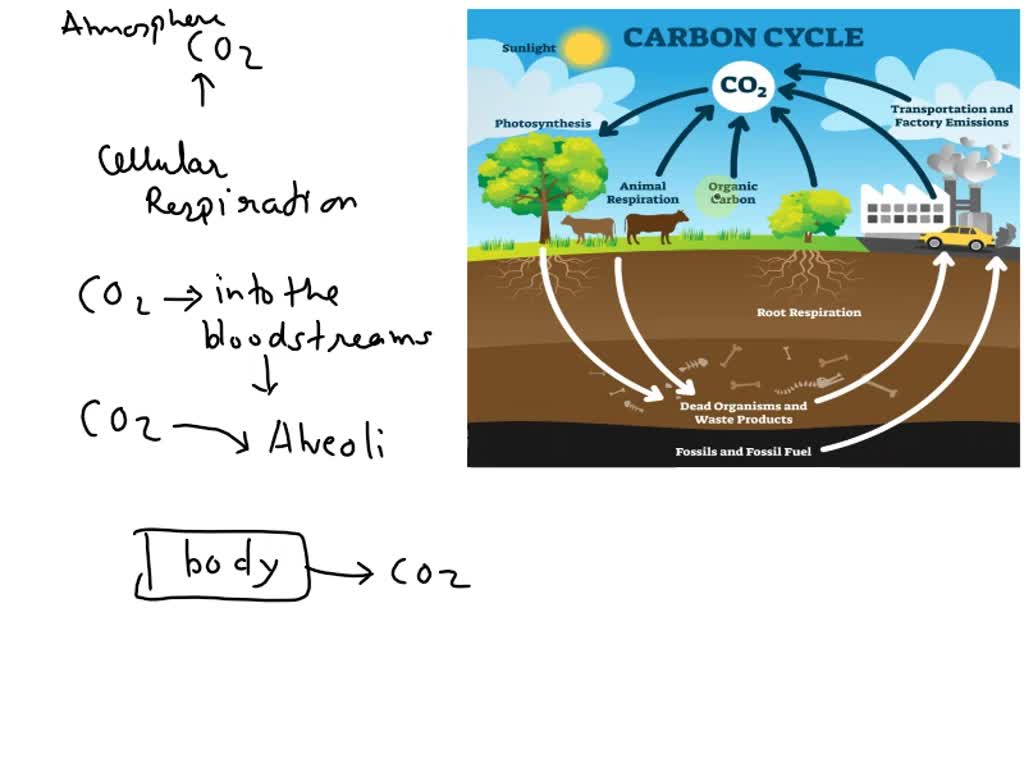 Atmosphere
CO2
Cellular
Respiration
CO2 → into the
bloodstreams
CO2 → Alveoli
body → CO2
CARBON CYCLE
Sunlight
CO₂
Transportation and
Factory Emissions
Photosynthesis
Animal
Respiration
Organic
Carbon
Root Respiration
Dead Organisms and
Waste Products
Fossils and Fossil Fuel